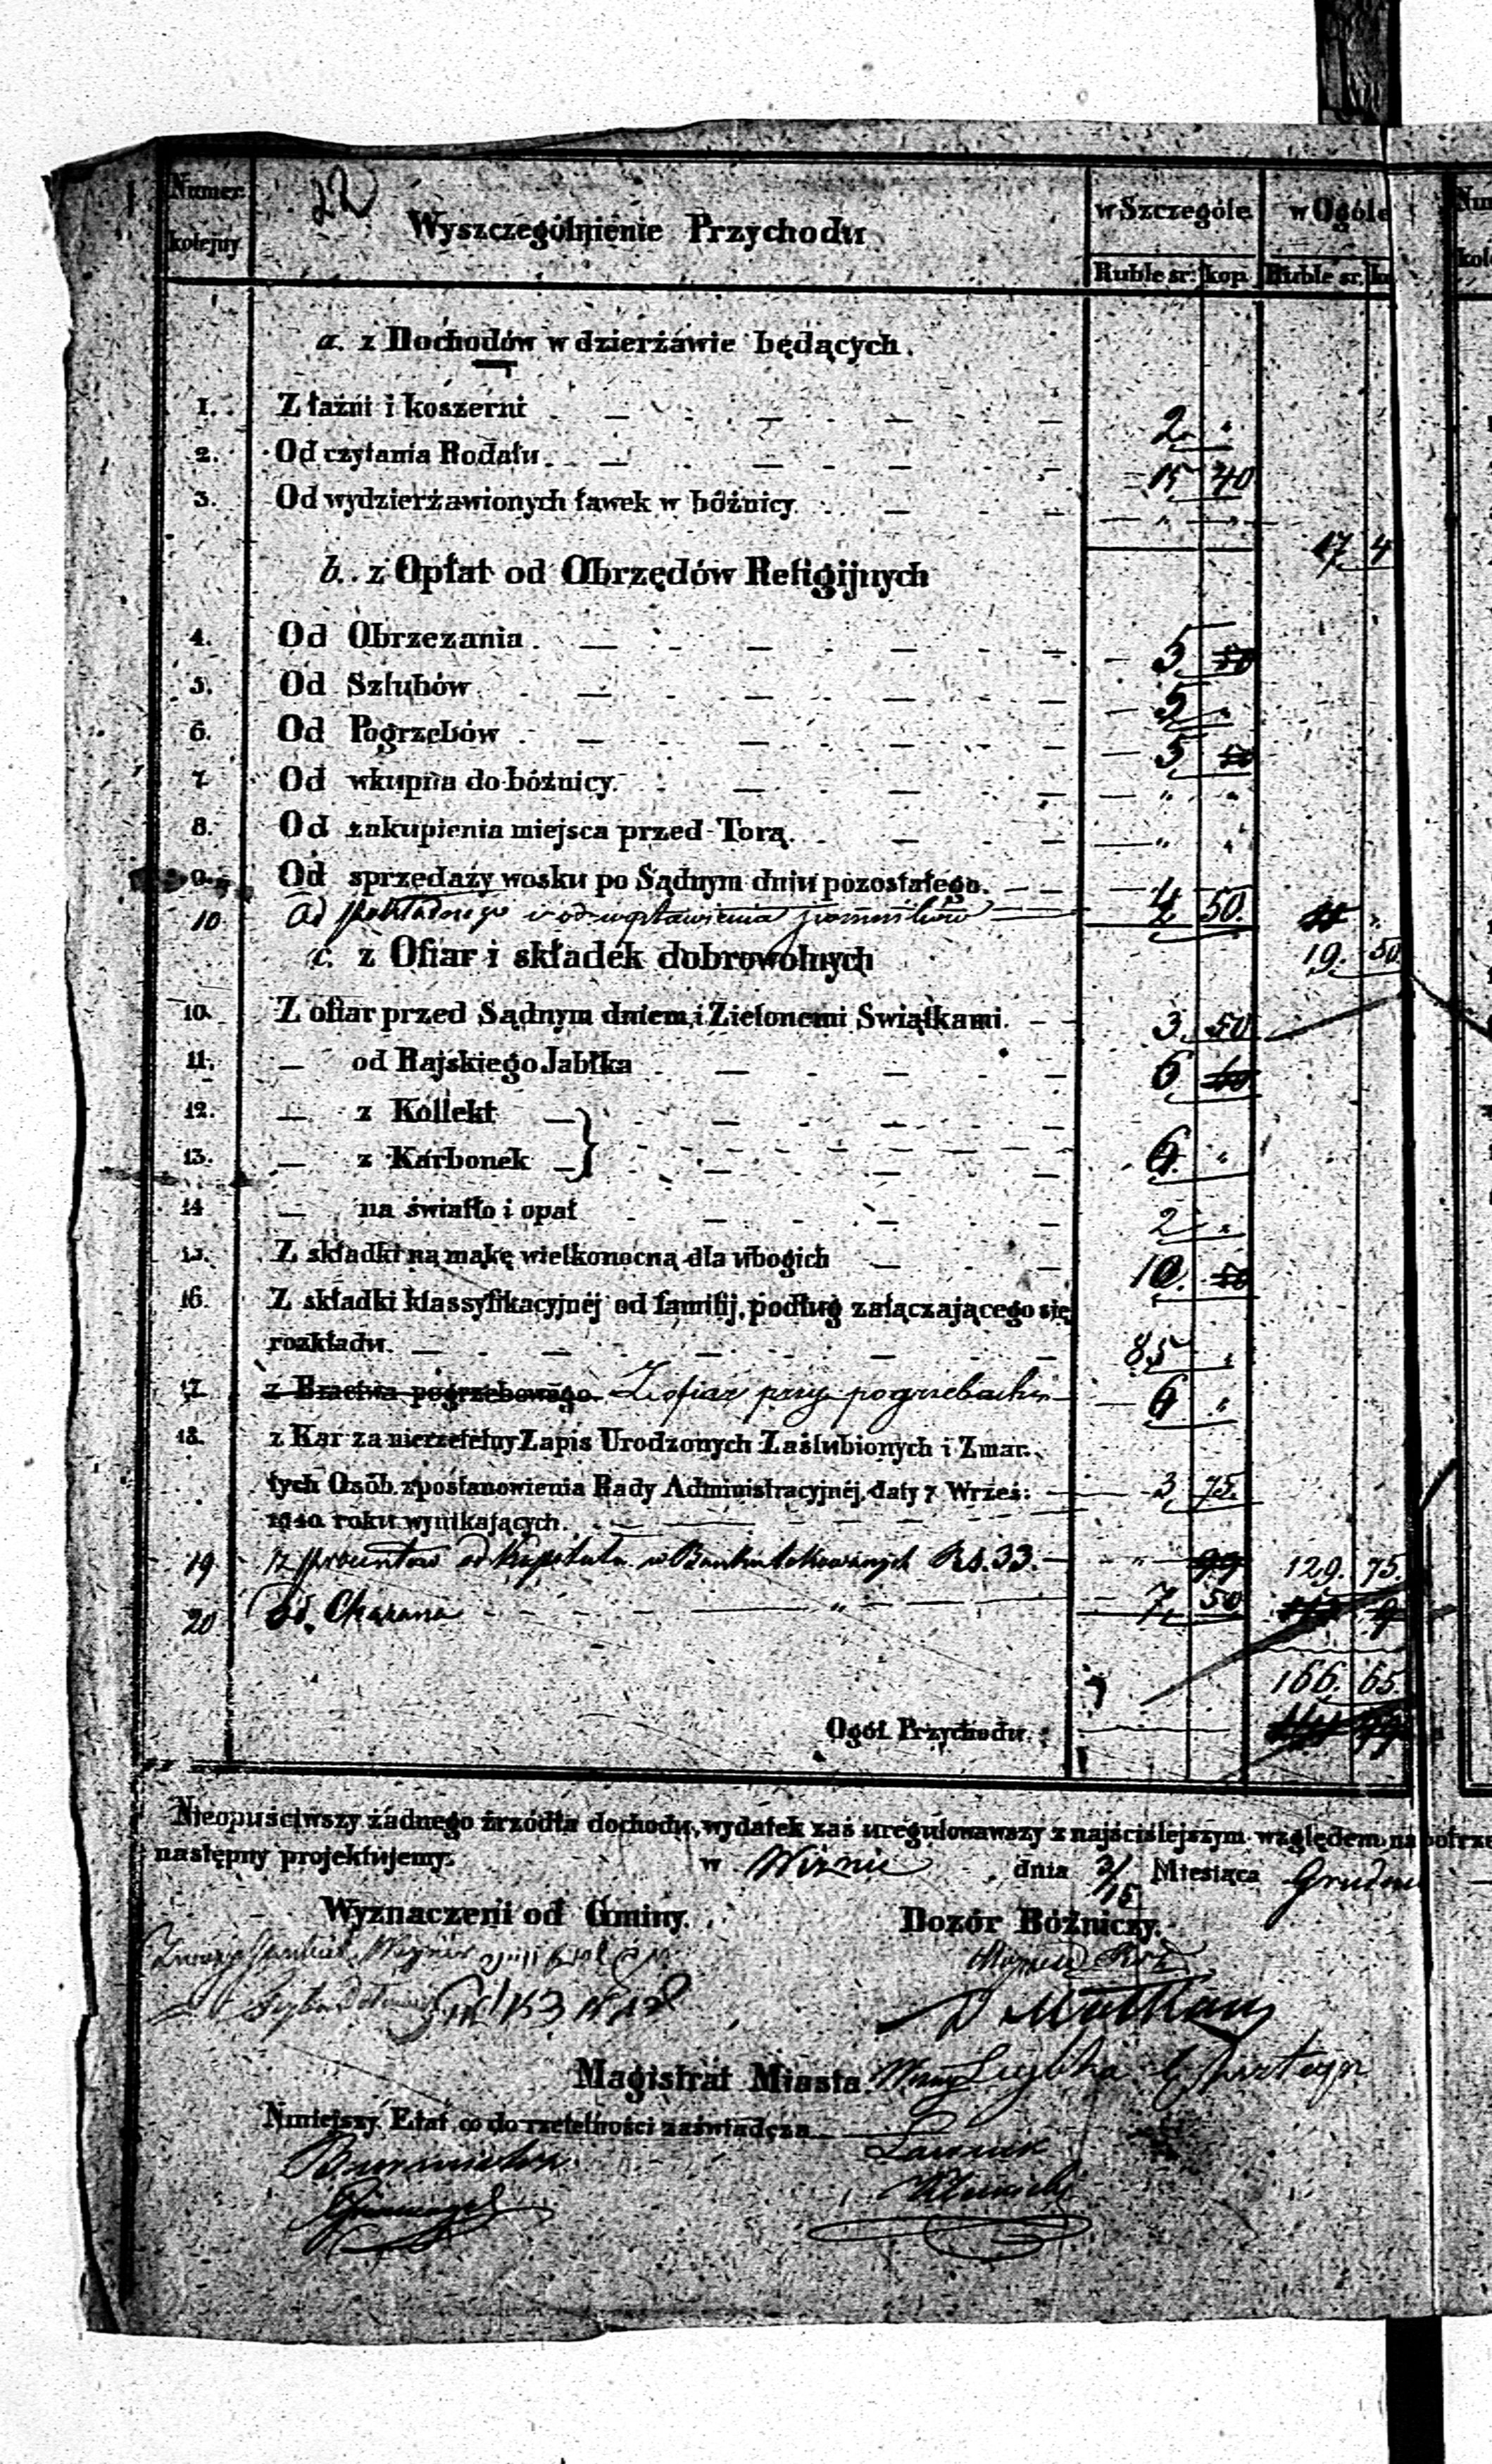 Numer kolejny
22
Wyszczególnienie Przychodu
w Szczególe
w Ogóle
Ruble sr. kop. Ruble sr. k
a. z Dochodów w dzierżawie będących.
1. Z łaźni i koszerni 2. "
2. Od czytania Rodału. 15 40
3. Od wydzierżawionych ławek w bóżnicy. " "
17 4
b. z Opłat od Obrzędów Religijnych
4. Od Obrzezania. 5 50
5. Od Szlubów 5 "
6. Od Pogrzebów 5 50
7. Od wkupna do bóżnicy. " "
8. Od zakupienia miejsca przed Torą. " "
9. Od sprzedaży wosku po Sądnym dniu pozostałego.
10 Od pokładnego i od wystawienia pomników 4 50.
c. z Ofiar i składek dobrowolnych 19. 50.
10. Z ofiar przed Sądnym dniem i Zielonemi Swiątkami. 3. 50
11. — od Rajskiego Jabłka 6
12. — z Kollekt
13. — z Karbonek 6. "
14 — na światło i opał 2 "
15. Z składki na mąkę wielkonocną dla ubogich 10. 50
16. Z składki klassyfikacyjnéj od familij, podług załączającego się
rozkładu. 85 "
17. z Bractwa pogrzebowego. Z ofiar przy pogrzebach 6 "
18. z Kar za nierzetelny Zapis Urodzonych Zaślubionych i Zmar-
łych Osób z postanowienia Rady Administracyjnéj, daty 7 Wrześ: 3 75.
1840 roku wynikających.
19 z procentów od Kapitału w Banku lokowanych Rs. 33. " 99 129. 75.
20 Od Chazana " 7. 50
166. 65.
Ogół Przychodu.
Nieopuściwszy żadnego źrzódła dochodu, wydatek zaś uregulowawszy z najściślejszym względem na potrze
następny projektujemy. w Wiznie dnia 3/15 Miesiąca Grudnia
Wyznaczeni od Gminy. Dozór Bóżniczy.
Magistrat Miasta Wizny
Niniejszy Etat co do rzetelności zaświadcza
Burmistrz
Ławnik